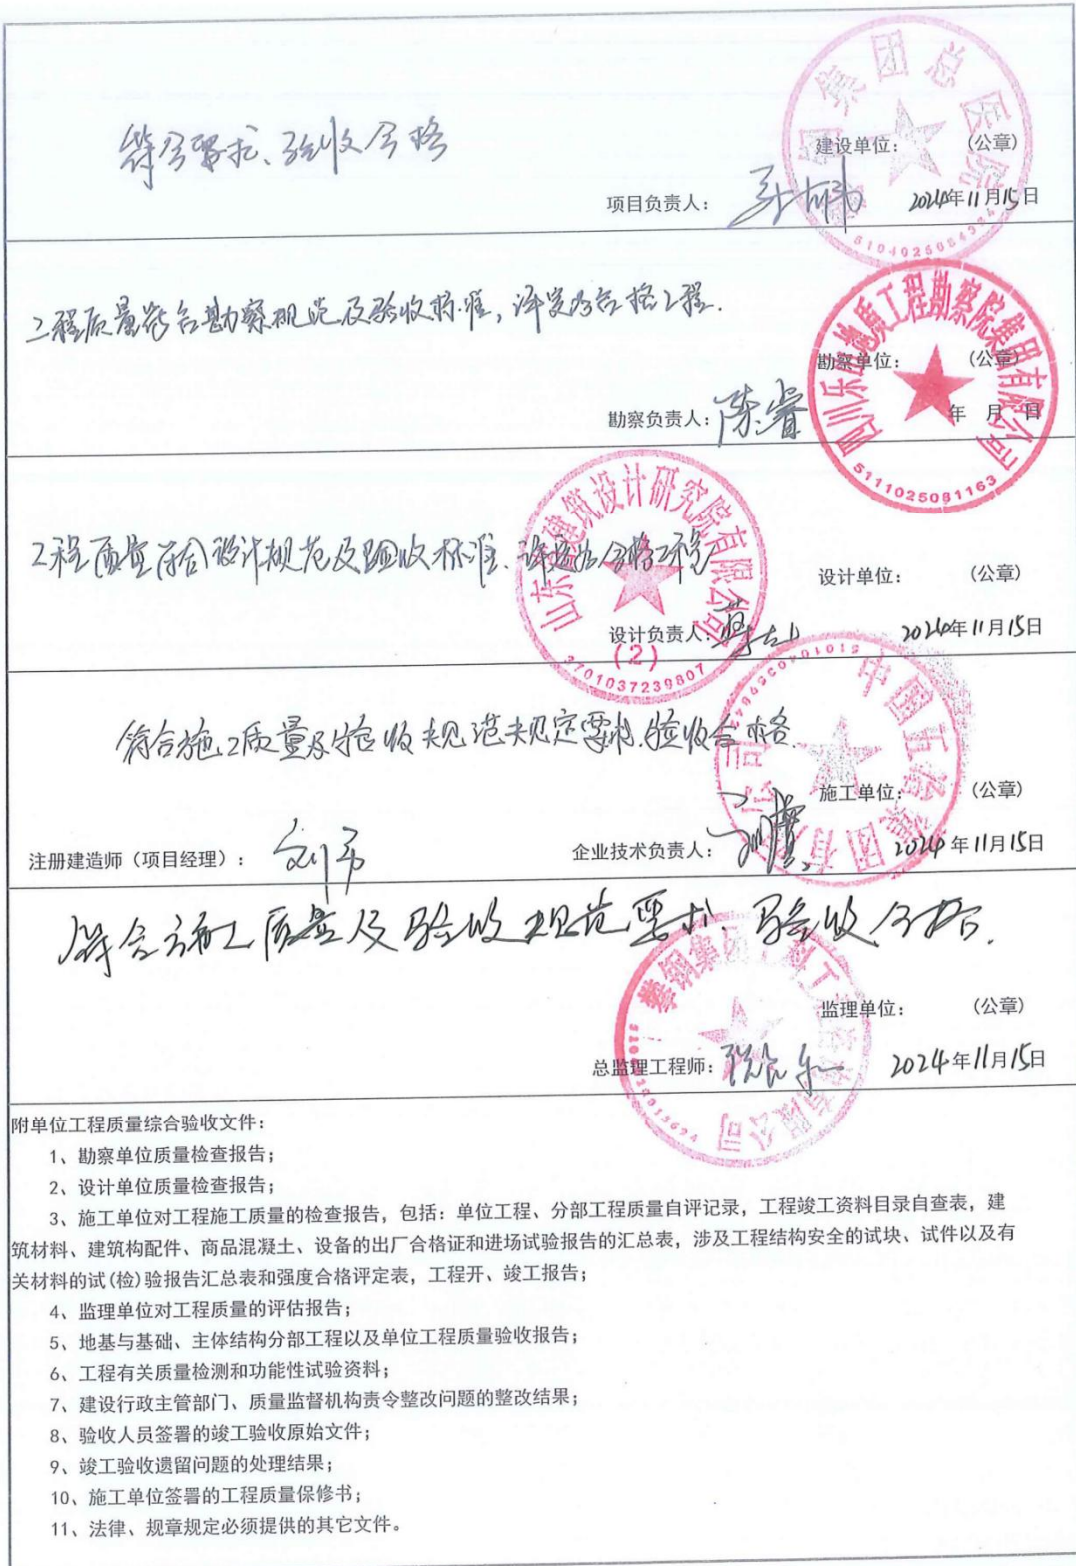 符合要求、验收合格
攀钢集团总医院
建设单位： （公章）
项目负责人： 2024年11月15日
5104025084324
工程质量符合勘察规范及验收标准，评定为合格工程.
四川乐山地质工程勘察院集团有限公司
勘察单位： （公章）
勘察负责人：陈睿 年 月 日
5111025081163
工程质量符合设计规范及验收标准、评定为合格工程
山东省建筑设计研究院有限公司
设计单位： （公章）
设计负责人： 2024年11月15日
(2)
3701037239807
符合施工质量及验收规范规定要求.验收合格.
中国五冶集团有限公司
施工单位： （公章）
注册建造师（项目经理）： 企业技术负责人： 2024年11月15日
符合施工质量及验收规范要求、验收合格.
监理单位： （公章）
总监理工程师： 2024年11月15日
附单位工程质量综合验收文件：
1、勘察单位质量检查报告；
2、设计单位质量检查报告；
3、施工单位对工程施工质量的检查报告，包括：单位工程、分部工程质量自评记录，工程竣工资料目录自查表，建
筑材料、建筑构配件、商品混凝土、设备的出厂合格证和进场试验报告的汇总表，涉及工程结构安全的试块、试件以及有
关材料的试(检)验报告汇总表和强度合格评定表，工程开、竣工报告；
4、监理单位对工程质量的评估报告；
5、地基与基础、主体结构分部工程以及单位工程质量验收报告；
6、工程有关质量检测和功能性试验资料；
7、建设行政主管部门、质量监督机构责令整改问题的整改结果；
8、验收人员签署的竣工验收原始文件；
9、竣工验收遗留问题的处理结果；
10、施工单位签署的工程质量保修书；
11、法律、规章规定必须提供的其它文件。